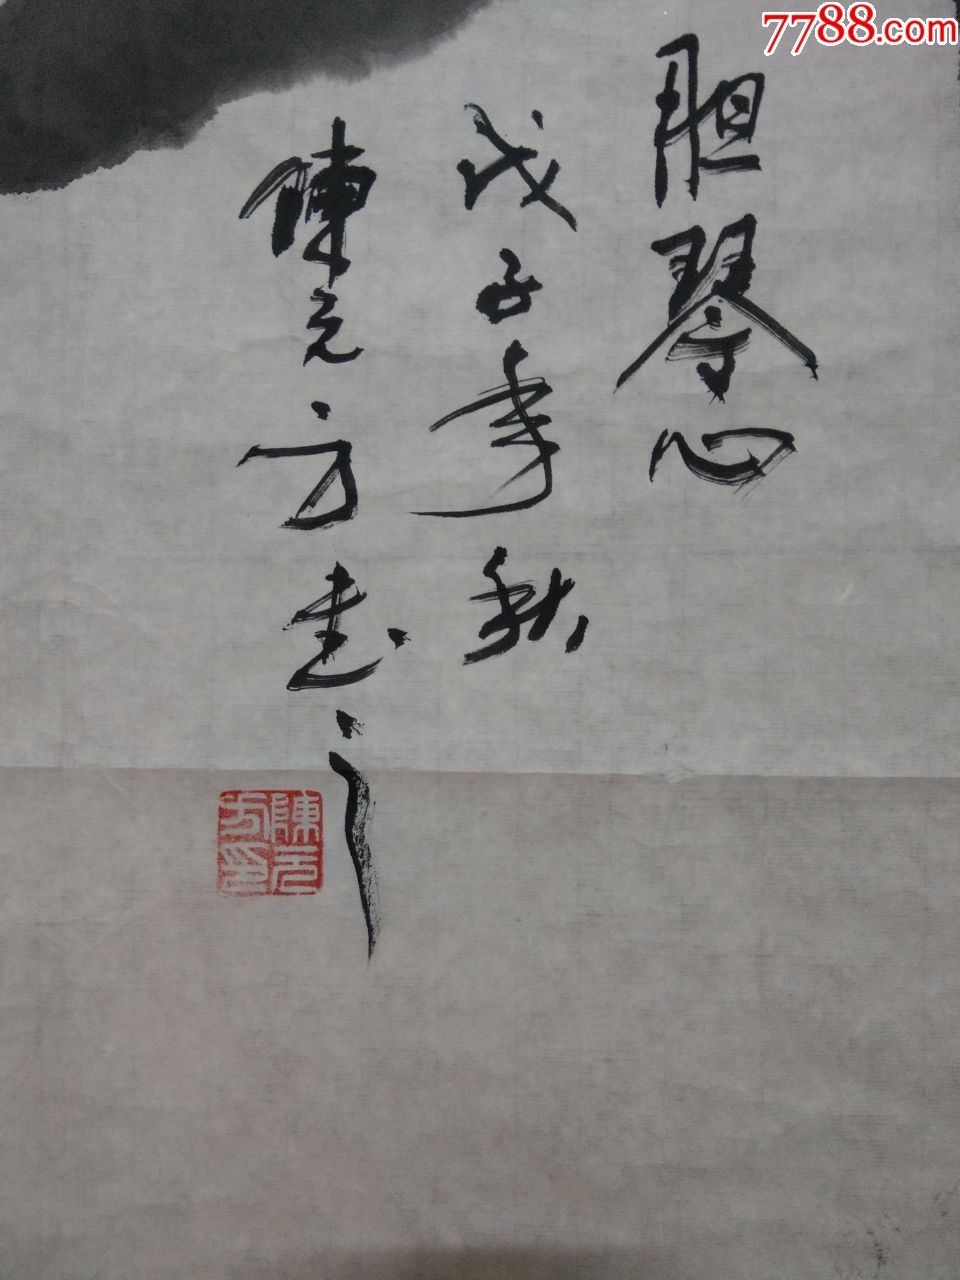 胆琴心
戊子年秋
陳元方畫之
陳元方印
7788.com